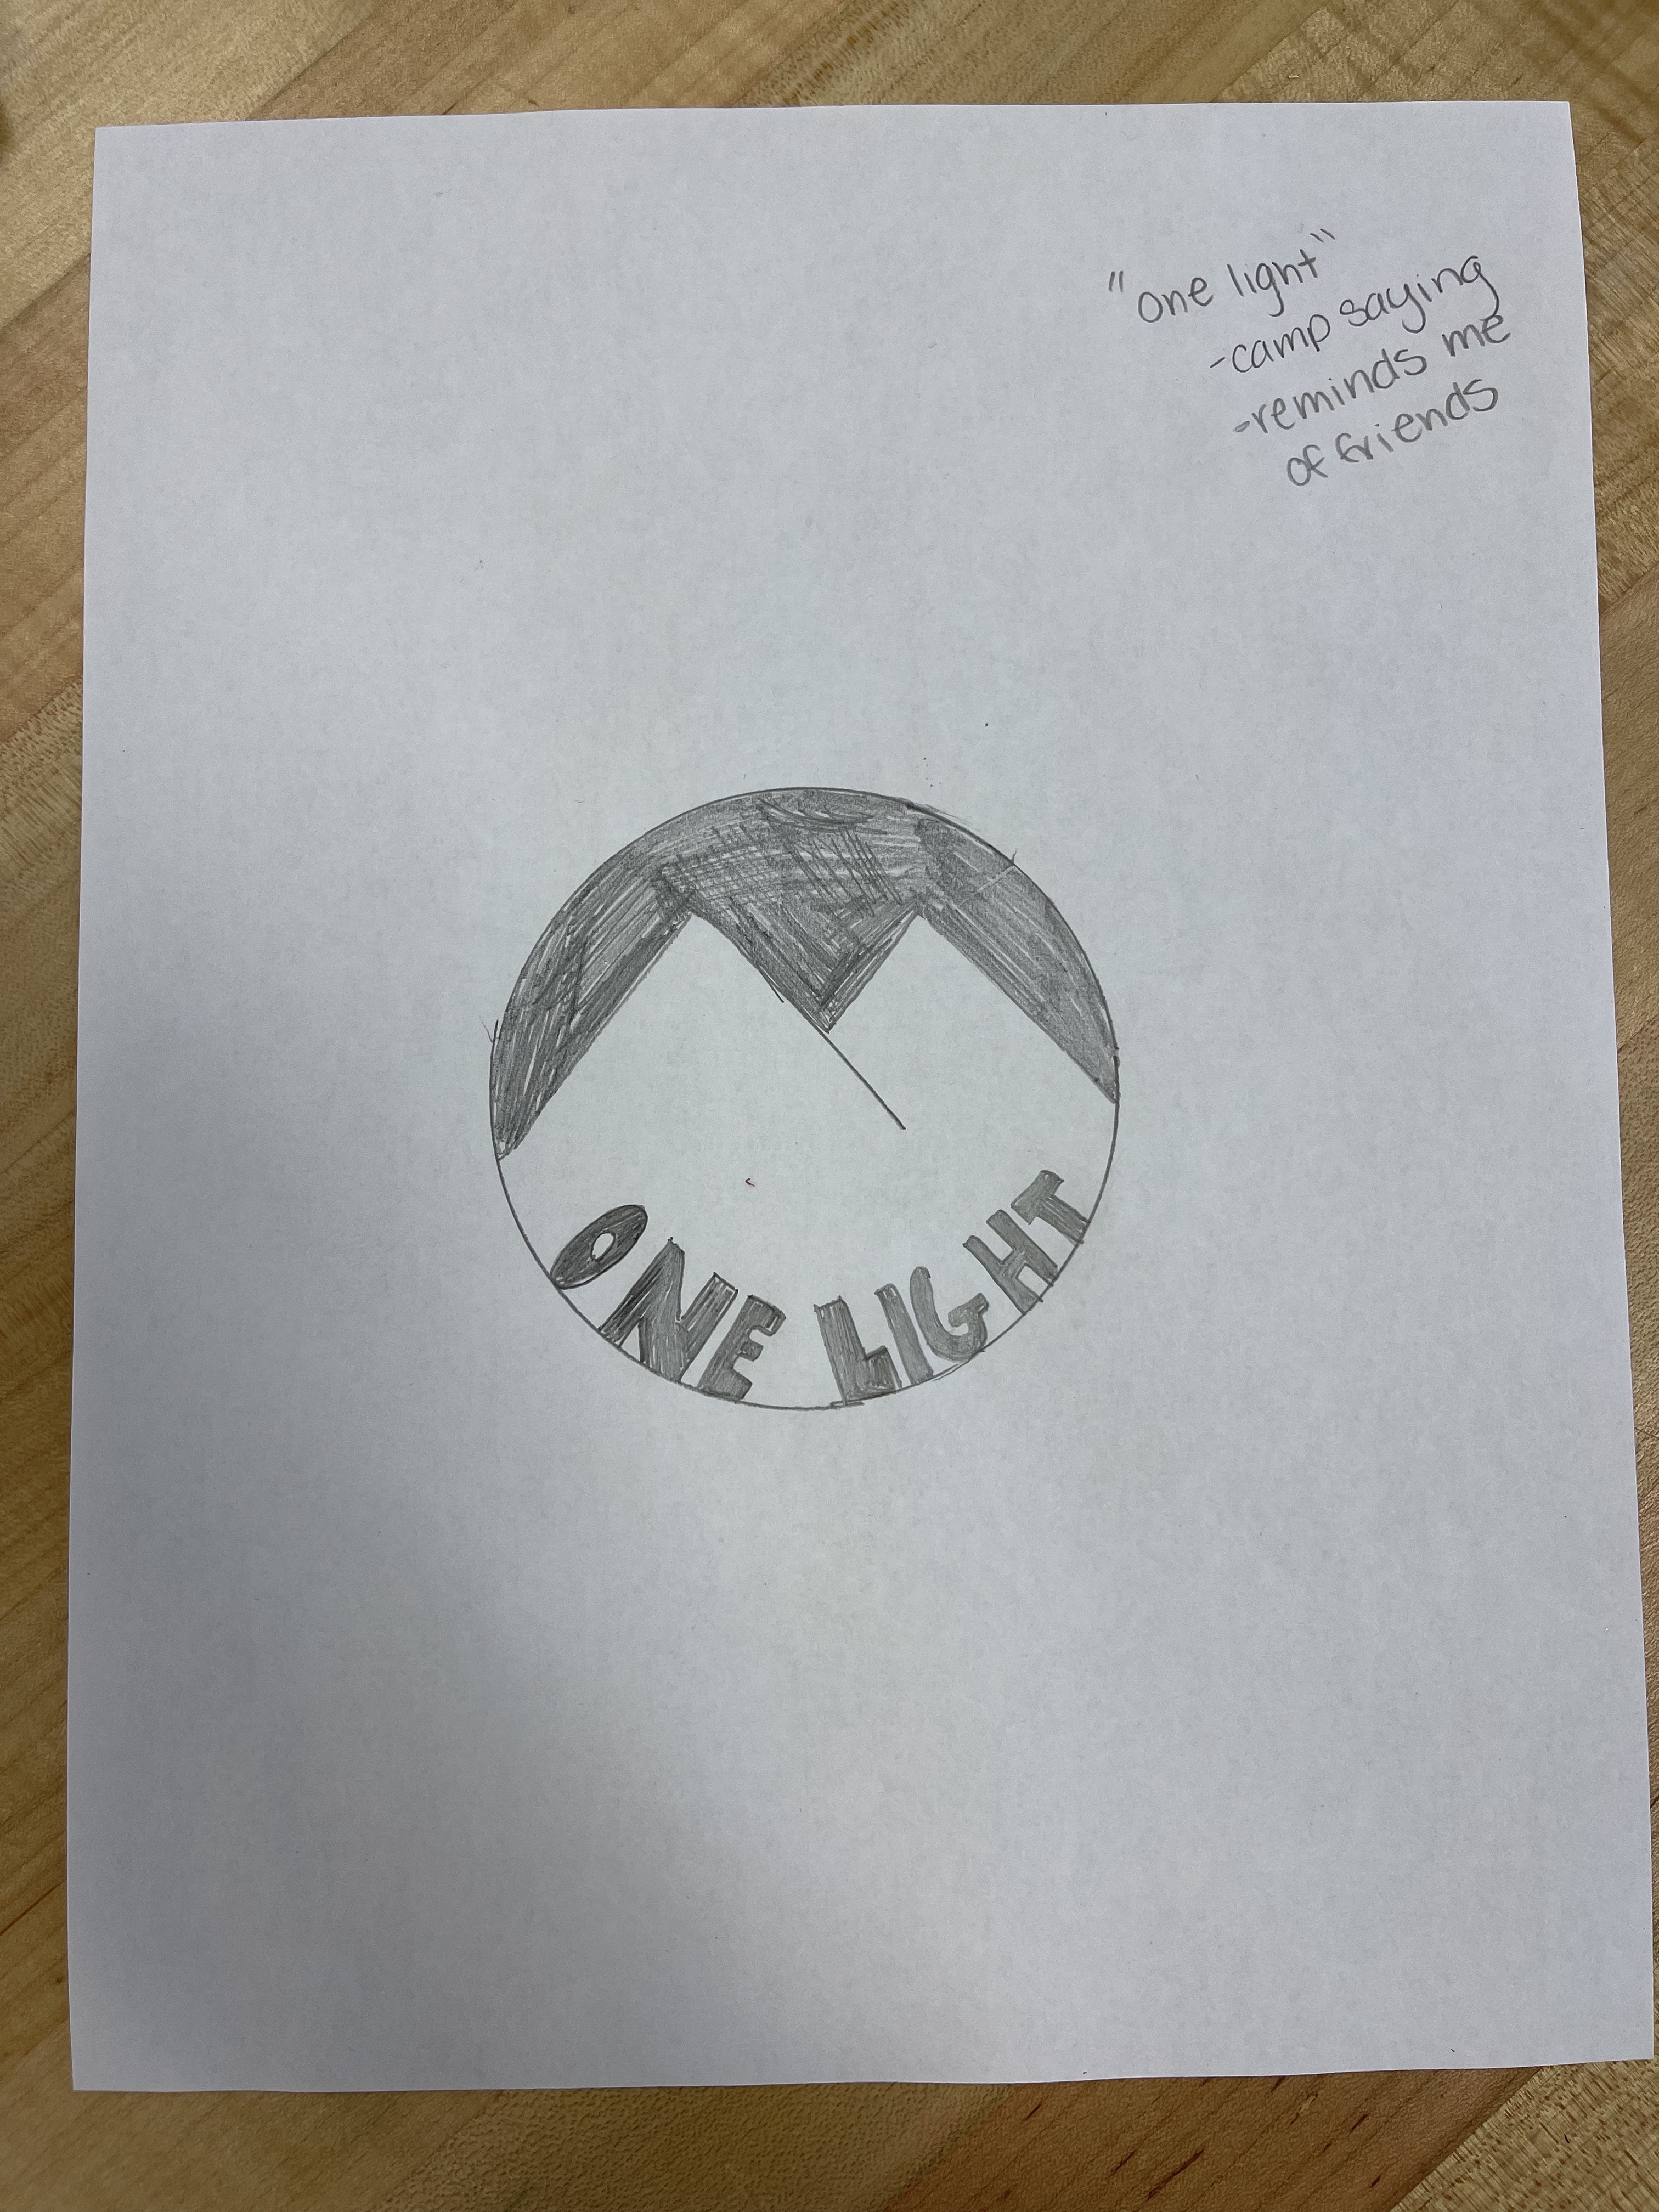 "one light"
-camp saying
-reminds me
of friends
ONE LIGHT